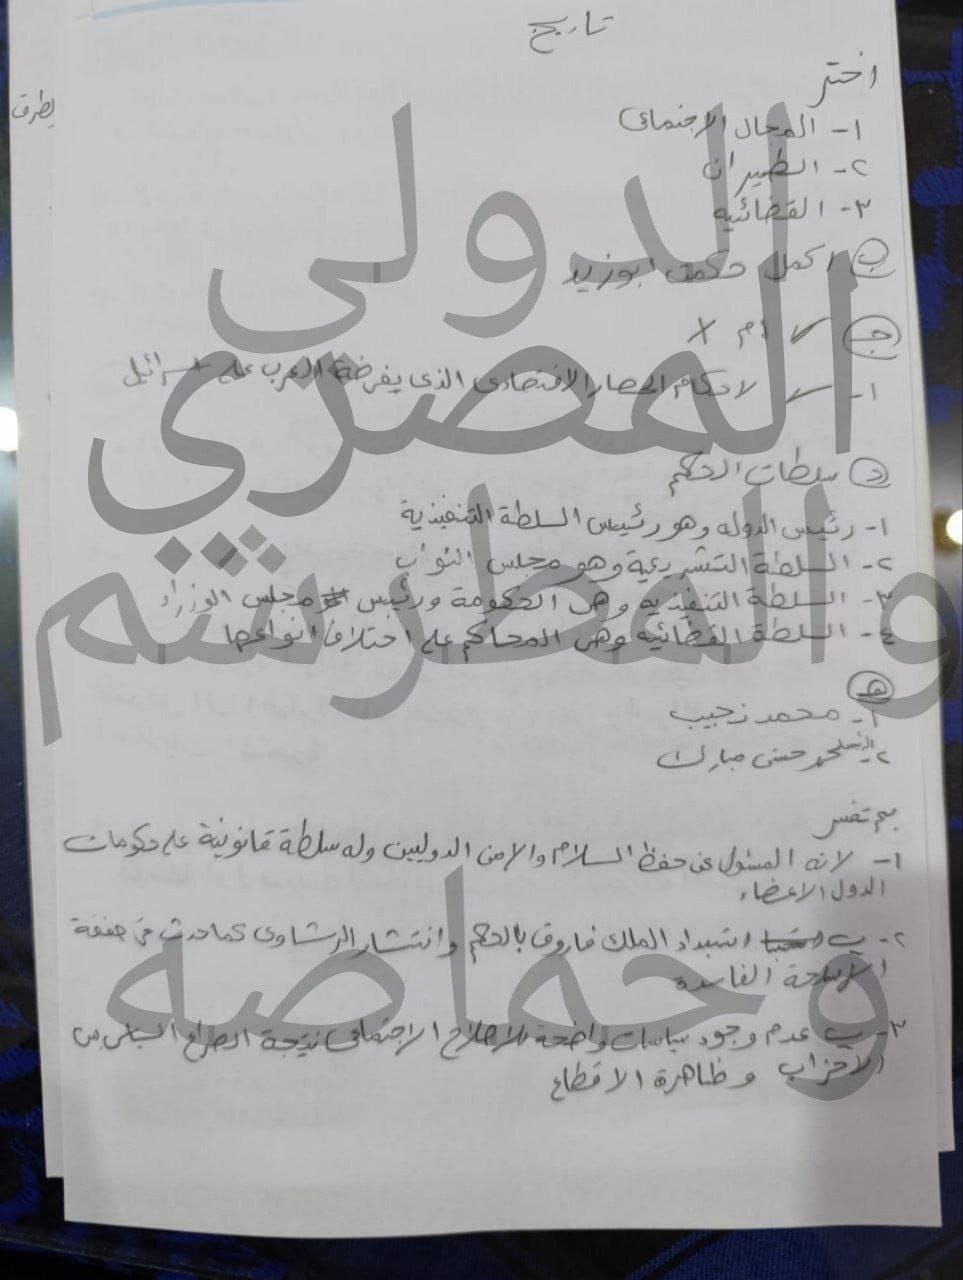 تاريخ
اختر
١- المجال الاجتماعى
٢- الطيران
٣- القضائيه
ب اكمل حكمت ابوزيد
ج ✓ ام X
١- ✓ لاحكام الحصار الاقتصادى الذى يفرضة العرب على اسرائيل
د سلطات الحكم
١- رئيس الدوله وهو رئيس السلطة التنفيذية
٢- السلطة التشريعية وهو مجلس النواب
٣- السلطة التنفيذيه وهى الحكومة ورئيس مجلس الوزراء
٤- السلطة القضائيه وهى المحاكم على اختلاف انواعها
هـ
١- محمد نجيب
٢- محمد حسنى مبارك
بم تفسر
١- لانه المسئول عن حفظ السلام والامن الدوليين وله سلطة قانونية على حكومات
الدول الاعضاء
٢- ب استبداد الملك فاروق بالحكم وانتشار الرشاوى كما حدث فى صفقة
الاسلحة الفاسده
٣- ب عدم وجود سياسات واضحة للاصلاح الاجتماعى نتيجة الصراع السياسى بين
الاحزاب وظاهرة الاقطاع
يطرق
الدولي
المصري
والمطرشم
وحماصه